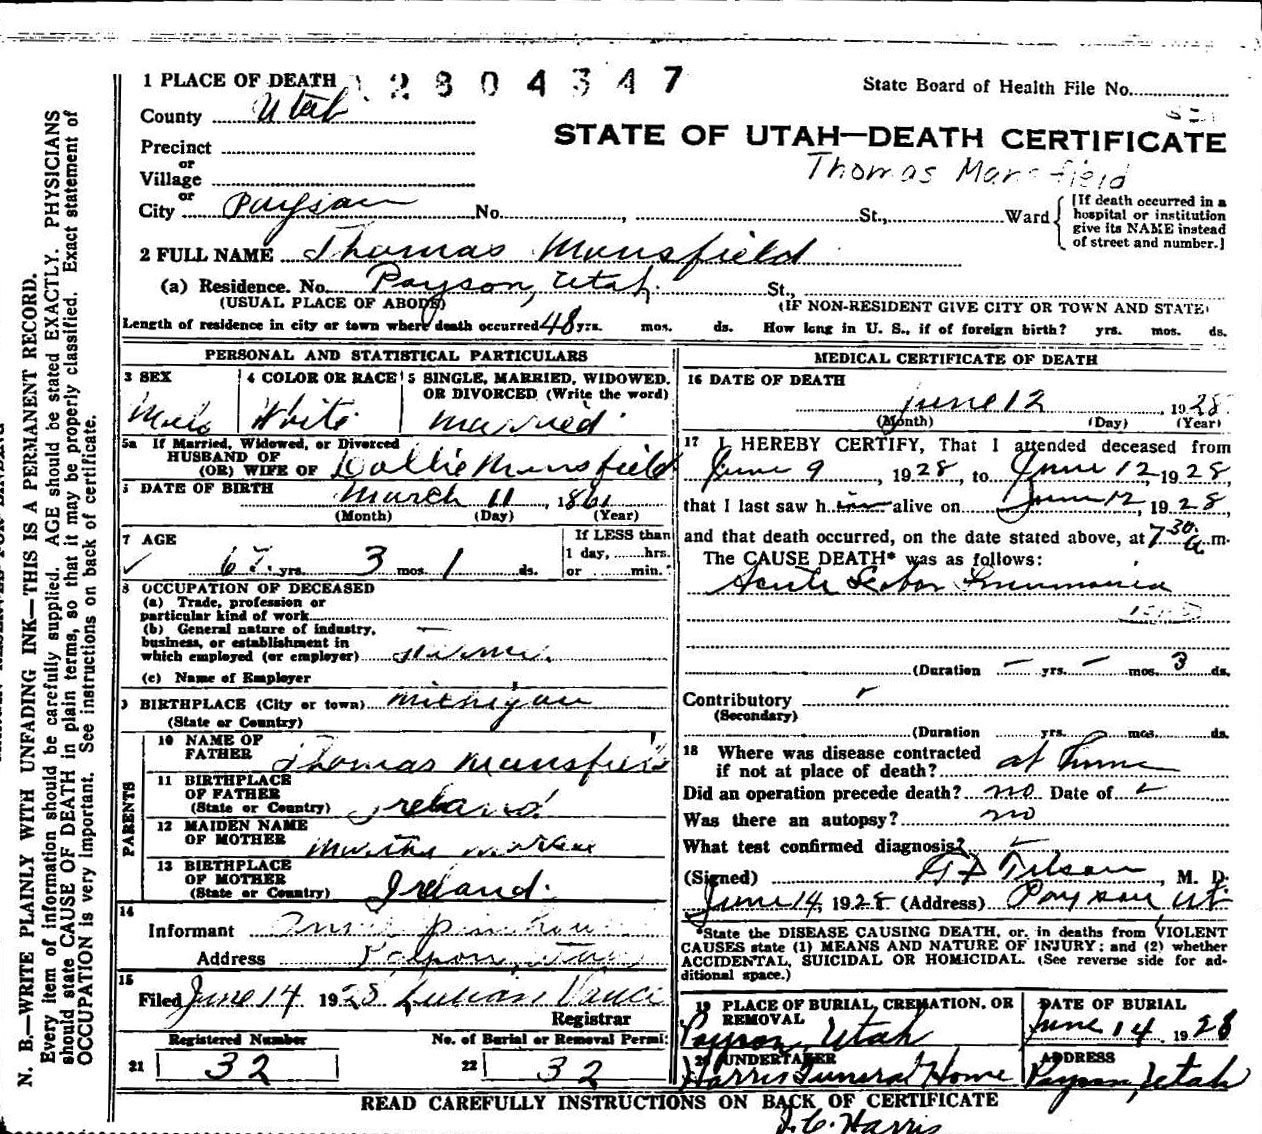 1 PLACE OF DEATH 2804347
State Board of Health File No.
County Utah
STATE OF UTAH—DEATH CERTIFICATE
Precinct
or
Thomas Mansfield
Village
or
City Payson No. , St., Ward
[If death occurred in a
hospital or institution
give its NAME instead
of street and number.]
2 FULL NAME Thomas Mansfield
(a) Residence. No. Payson, Utah. St.,
(USUAL PLACE OF ABODE) (IF NON-RESIDENT GIVE CITY OR TOWN AND STATE)
Length of residence in city or town where death occurred 48 yrs. mos. ds. How long in U. S., if of foreign birth? yrs. mos. ds.
PERSONAL AND STATISTICAL PARTICULARS
3 SEX 4 COLOR OR RACE 5 SINGLE, MARRIED, WIDOWED.
OR DIVORCED (Write the word)
Male White Married
5a If Married, Widowed, or Divorced
HUSBAND OF
(OR) WIFE OF Dollie Mansfield
DATE OF BIRTH March 11, 1861
(Month) (Day) (Year)
7 AGE If LESS than
1 day, hrs.
67 yrs. 3 mos. 1 ds. or min.
8 OCCUPATION OF DECEASED
(a) Trade, profession or
particular kind of work
(b) General nature of industry,
business, or establishment in
which employed (or employer)
(c) Name of Employer
9 BIRTHPLACE (City or town) Michigan
(State or Country)
PARENTS
10 NAME OF
FATHER Thomas Mansfield
11 BIRTHPLACE
OF FATHER
(State or Country) Ireland
12 MAIDEN NAME
OF MOTHER Martha
13 BIRTHPLACE
OF MOTHER
(State or Country) Ireland.
14
Informant
Address Payson, Utah
15
Filed June 14 1928 Lillian Vance
Registrar
Registered Number No. of Burial or Removal Permit
21 32 22 32
MEDICAL CERTIFICATE OF DEATH
16 DATE OF DEATH
June 12, 1928
(Month) (Day) (Year)
17 I HEREBY CERTIFY, That I attended deceased from
June 9, 1928, to June 12, 1928
that I last saw him alive on June 12, 1928,
and that death occurred, on the date stated above, at 7 30 a m.
The CAUSE DEATH* was as follows:
Acute Lobar Pneumonia
(Duration — yrs. — mos. 3 ds.
Contributory
(Secondary)
(Duration yrs. mos. ds.
18 Where was disease contracted
if not at place of death? at home
Did an operation precede death? no Date of
Was there an autopsy? no
What test confirmed diagnosis?
(Signed) Tilson, M. D.
June 14, 1928 (Address) Payson Ut.
*State the DISEASE CAUSING DEATH, or, in deaths from VIOLENT
CAUSES state (1) MEANS AND NATURE OF INJURY; and (2) whether
ACCIDENTAL, SUICIDAL OR HOMICIDAL. (See reverse side for ad-
ditional space.)
19 PLACE OF BURIAL, CREMATION, OR
REMOVAL
Payson, Utah
DATE OF BURIAL
June 14 1928
20 UNDERTAKER
Harris Funeral Home
ADDRESS
Payson, Utah
READ CAREFULLY INSTRUCTIONS ON BACK OF CERTIFICATE
J. C. Harris
N. B.—WRITE PLAINLY WITH UNFADING INK—THIS IS A PERMANENT RECORD.
Every item of information should be carefully supplied. AGE should be stated EXACTLY. PHYSICIANS
should state CAUSE OF DEATH in plain terms, so that it may be properly classified. Exact statement of
OCCUPATION is very important. See instructions on back of certificate.